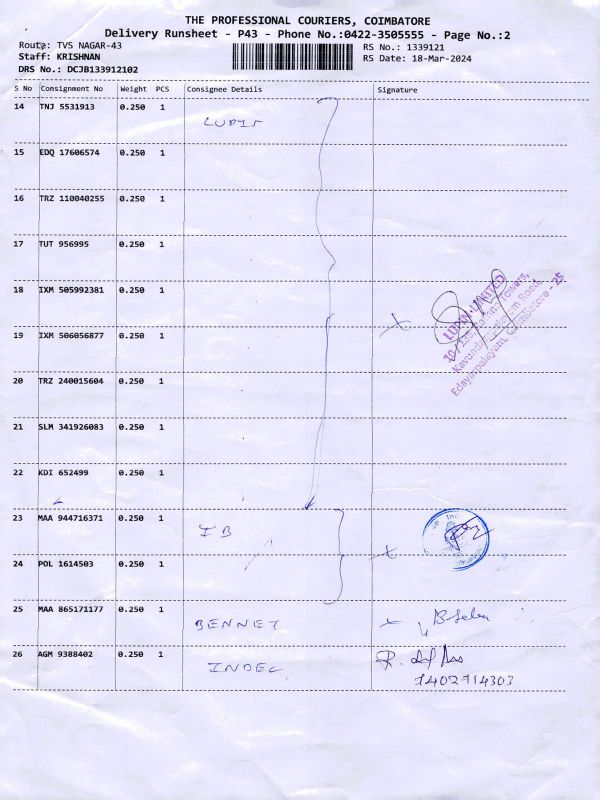 THE PROFESSIONAL COURIERS, COIMBATORE
Delivery Runsheet - P43 - Phone No.:0422-3505555 - Page No.:2
Route: TVS NAGAR-43
RS No.: 1339121
Staff: KRISHNAN
RS Date: 18-Mar-2024
DRS No.: DCJB133912102
S No Consignment No Weight PCS Consignee Details Signature
14 TNJ 5531913 0.250 1
LUPIN
15 EDQ 17606574 0.250 1
16 TRZ 110040255 0.250 1
17 TUT 956995 0.250 1
18 IXM 505992381 0.250 1
LUPIN LIMITED
Kavundampalayam Road,
Edayarpalayam, Coimbatore - 25
19 IXM 506056877 0.250 1
20 TRZ 240015604 0.250 1
21 SLM 341926083 0.250 1
22 KDI 652499 0.250 1
23 MAA 944716371 0.250 1
IB
24 POL 1614503 0.250 1
25 MAA 865171177 0.250 1
BENNET
26 AGM 9388402 0.250 1
INDEC
7402714303